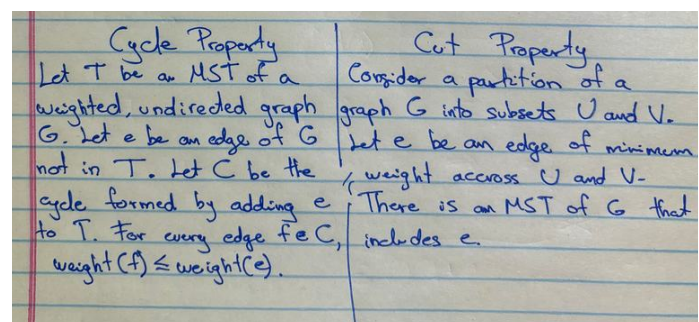 Cycle Property
Let T be an MST of a
weighted, undirected graph
G. Let e be an edge of G
not in T. Let C be the
cycle formed by adding e
to T. For every edge f∈C,
weight(f) ≤ weight(e).
Cut Property
Consider a partition of a
graph G into subsets U and V.
Let e be an edge of minimum
weight accross U and V.
There is an MST of G that
includes e.